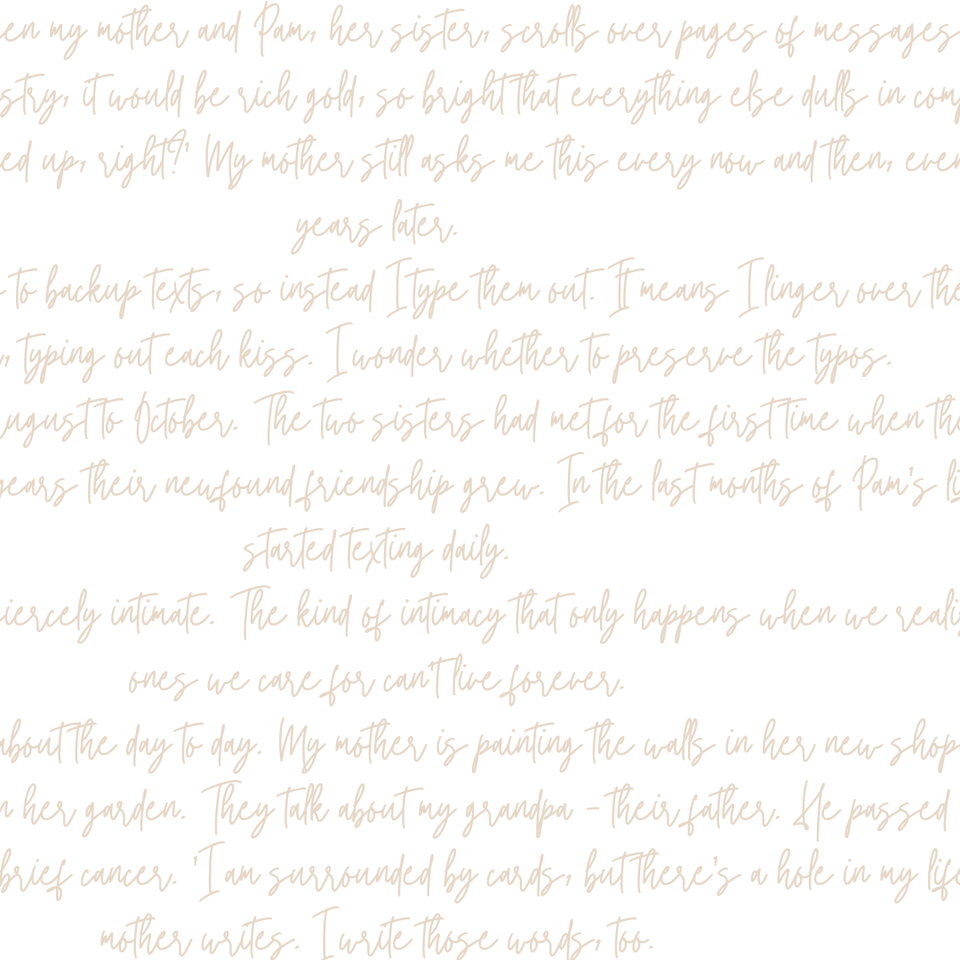 en my mother and Pam, her sister, scrolls over pages of messages
stry, it would be rich gold, so bright that everything else dulls in com
ed up, right?' My mother still asks me this every now and then, even
years later.
to backup texts, so instead I type them out. It means I linger over the
, typing out each kiss. I wonder whether to preserve the typos.
ugust to October. The two sisters had met for the first time when the
years their newfound friendship grew. In the last months of Pam's li
started texting daily.
iercely intimate. The kind of intimacy that only happens when we reali
ones we care for can't live forever.
about the day to day. My mother is painting the walls in her new shop
n her garden. They talk about my grandpa - their father. He passed
brief cancer. 'I am surrounded by cards, but there's a hole in my life
mother writes. I write those words, too.